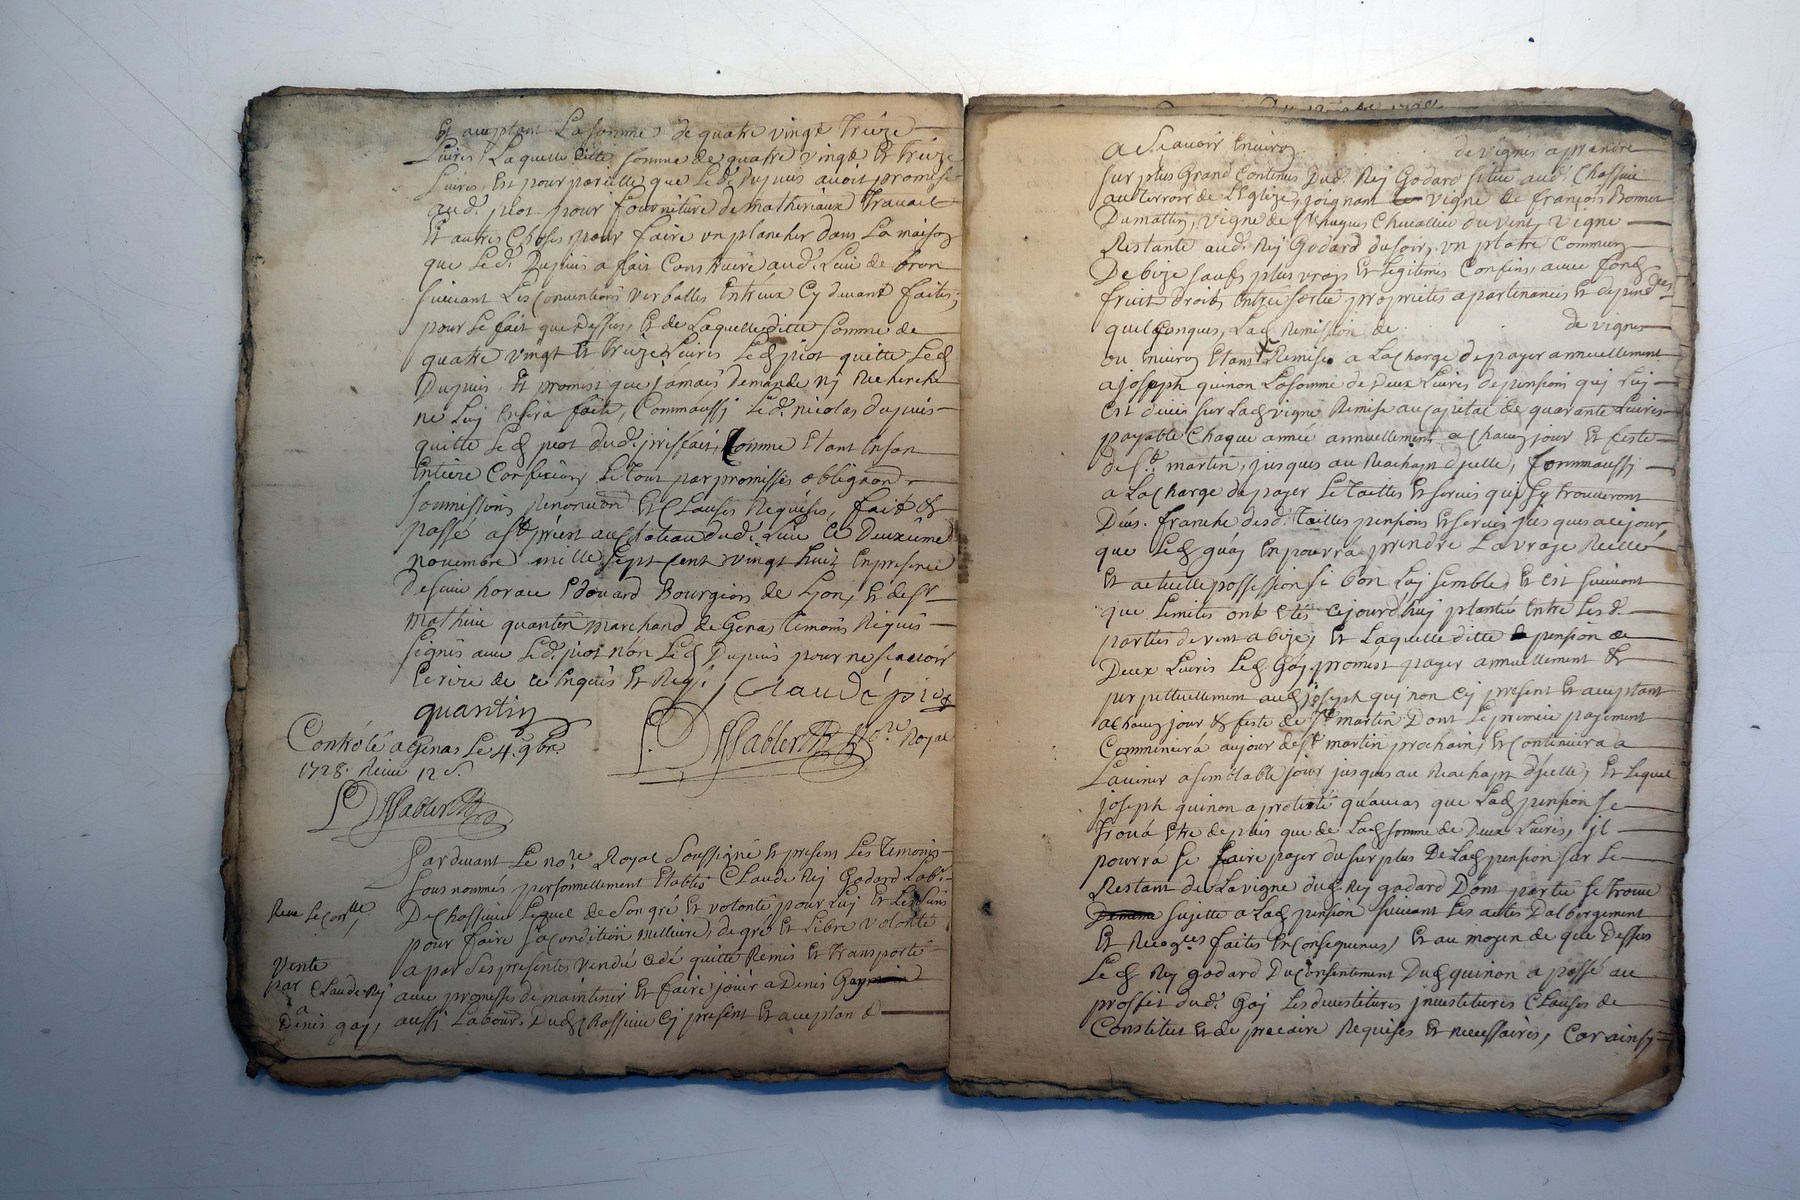 Et acceptant La somme de quatre vingt treize
Livres, Laquelle ditte somme de quatre vingt Et treize
Livres, Est pour pareille que Led. Dupuis avoit promise
aud. piot pour fourniture de matheriaux Travail
Et autres Choses pour faire un plancher dans La maison
que Led. Dupuis a fait Construire aud. Lieu de bron
suivant Les Conventions verballes Entreux Cy devant faites,
pour Le fait que Dessus, Et de Laquelle ditte somme de
quatre vingt Et treize Livres Led piot quitte Led
Dupuis, Et promest que jamais demande ny Recherche
ne Luy Ensera faite, Comm'aussi Led. nicolas dupuis
quitte Led piot dud. prisfait, Comme Etant Enson
Entiere Confection Le Tout par promisses obligaon
soumissions Renonciaon Et Clauses Requises, fait &
passé a St. priest au chateau dud. Lieu Ce Deuxième
novembre mille sept cent vingt huit En presence
de sieur horace Edouard Bourgeois de Lyon, Et de sr
mathieu quantin marchand de Genas temoins Requis
signés avec Led. piot non Led Dupuis pour ne scavoir
Ecrire de ce Enquis Et Reqs. Claude piot
quantin
Not.re Royal
Controlé a Genas Le 4. 9bre
1728. Receu 12 s.
Pardevant Le no.re Royal Soussigné Et presens Les Temoins
sous nommés personnellement Etabli Claude Rey Godard Lab.r
Receu Le Con.lle
De Chassieu Lequel de son gré Et volonté pour Luy Et Les siens
pour faire sa condition meilleure, de gré Et Libre volonté
Vente
a par Ses presentes vendu cedé quitté Remis Et transporté
par Claude Rey
avec promesses de maintenir Et faire jouir a Denis Gay
a
Denis gay,
aussi Labour. Dud Chassieu Cy present Et acceptant
a Scavoir Environ de vignes a prendre
sur plus Grand Contenus Dud. Rey Godard situé aud. Chassieu
au terroir de L'Eglize, joignant vigne de françois Bonnet
Du mattin, vigne de Sr hugues Chevallier du vent, vigne
Restante aud. Rey Godard du soir, un platre Commun
De bize saufs plus vrays Et Legitimes Confins, avec fond
fruits droits Entrée sortie proprietés apartenances Et dependces
quelconques, Lad Remission de de vignes
ou Environ Etant Remise a La Charge de payer annuellement
a joseph quinon La somme de Deux Livres de pension qui Luy
Est deue sur Lad vigne Remise au capital de quarante Livres
payable Chaque année annuellement a chacun jour Et feste
de St. martin, jusques au Rachapt d'jcelle, Commaussi
a La Charge de payer Le tailles Et servis qui sy trouveront
Deus. franche desd. Tailles pensions Et servis jusques a ce jour
que Led Gay En pourra prendre La vraye Reelle
Et actuelle possession si bon Luy semble, Et Est suivant
que Limites ont Etés cejourd'huy plantés Entre Lesd.
parties de vent a bize, Et Laquelle ditte pension de
Deux Livres Led Gay promest payer annuellement Et
perpetuellement aud joseph quinon Cy present Et acceptant
a chacun jour & feste de St martin Dont Le premier payement
Commencera au jour de St martin prochain, Et Continuera a
L'avenir a semblable jour jusques au Rachapt d'jcelle, Et Lequel
joseph quinon a protesté qu'aucas que Lad pension se
trouva Etre de plus que de Lad somme de Deux Livres, il
pourra se faire payer du surplus De Lad pension sur Le
Restant de La vigne dud Rey godard Dont partie se trouve
sujette a Lad pension suivant Les actes D'albergement
Et Recogces faites En consequences, Et au moyen de que Dessus
Led Rey godard Du Consentement Dud quinon a passé au
proffit dud. Gay Les devestitures jnvestitures Clauses de
Constitut Et de precaire Requises Et necessaires, Car ainsy